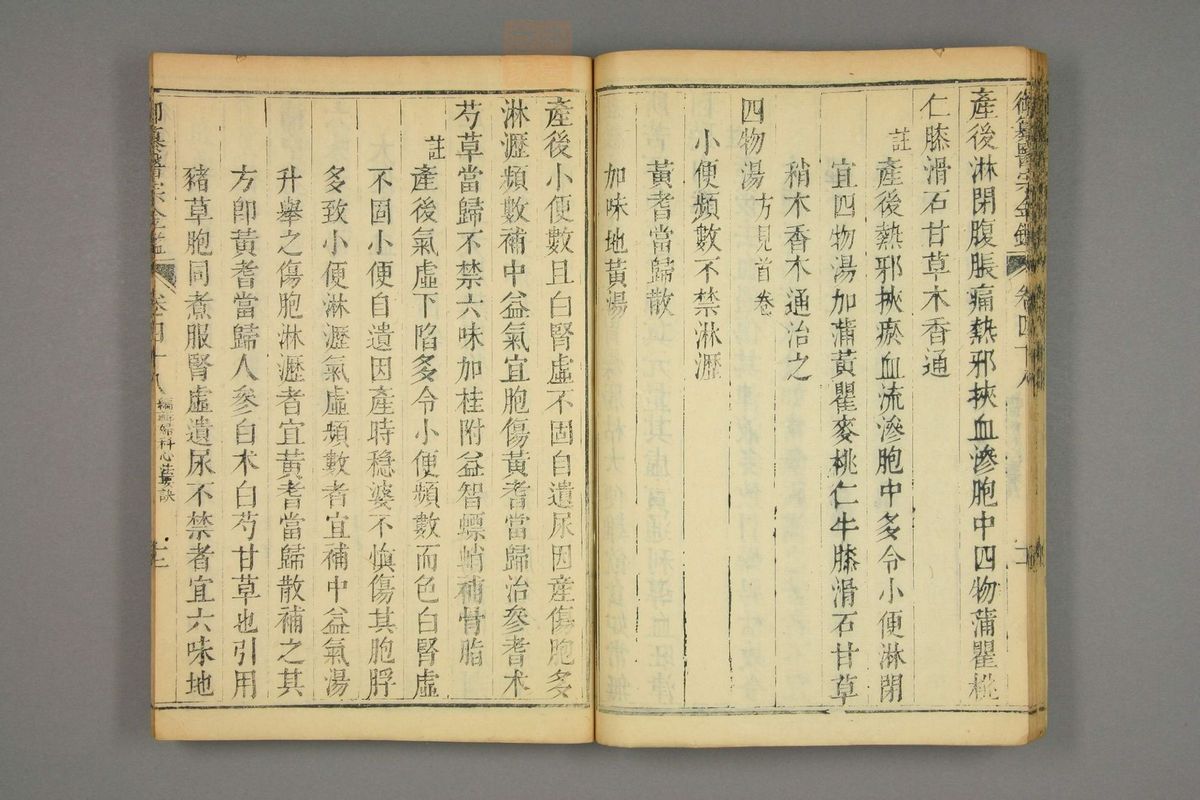 御纂醫宗金鑑 卷四十八
產後淋閉腹脹痛熱邪挾血滲胞中四物蒲瞿桃
仁膝滑石甘草木香通
註產後熱邪挾瘀血流滲胞中多令小便淋閉
宜四物湯加蒲黃瞿麥桃仁牛膝滑石甘草
稍木香木通治之
四物湯方見首卷
小便頻數不禁淋瀝
黃耆當歸散
加味地黃湯
產後小便數且白腎虛不固自遺尿因產傷胞多
淋瀝頻數補中益氣宜胞傷黃耆當歸治參耆术
芍草當歸不禁六味加桂附益智螵蛸補骨脂
註產後氣虛下陷多令小便頻數而色白腎虛
不固小便自遺因產時穩婆不慎傷其胞脬
多致小便淋瀝氣虛頻數者宜補中益氣湯
升舉之傷胞淋瀝者宜黃耆當歸散補之其
方卽黃耆當歸人參白术白芍甘草也引用
豬草胞同煮服腎虛遺尿不禁者宜六味地
御纂醫宗金鑑 卷四十八 編輯婦科心法要訣 十二